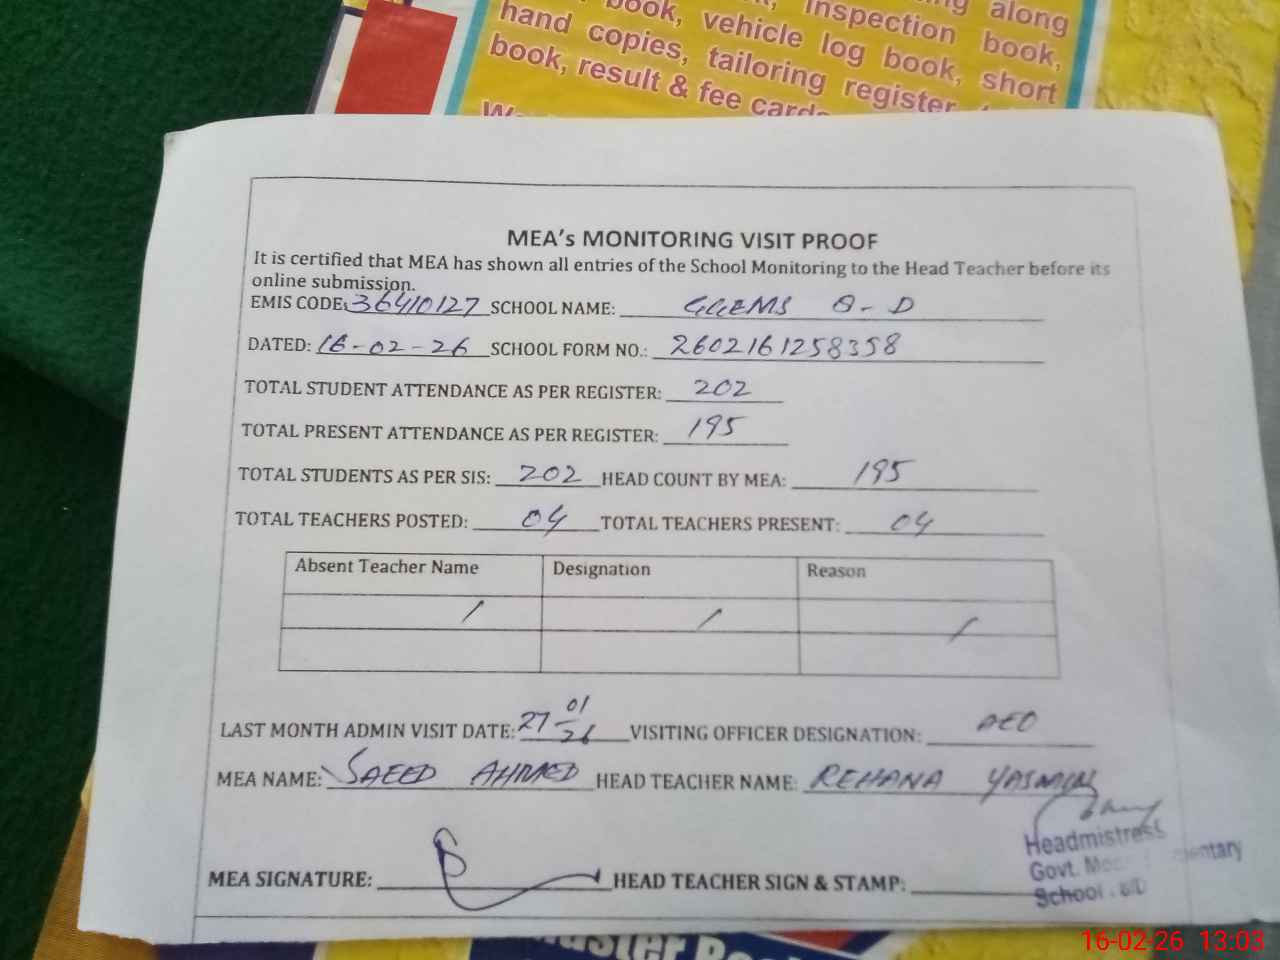 along
book, vehicle inspection book,
hand copies, tailoring log book, short
book, result & fee cards register
MEA's MONITORING VISIT PROOF
It is certified that MEA has shown all entries of the School Monitoring to the Head Teacher before its
online submission.
EMIS CODE: 36410127 SCHOOL NAME: GGEMS 8-D
DATED: 16-02-26 SCHOOL FORM NO.: 2602161258358
TOTAL STUDENT ATTENDANCE AS PER REGISTER: 202
TOTAL PRESENT ATTENDANCE AS PER REGISTER: 195
TOTAL STUDENTS AS PER SIS: 202 HEAD COUNT BY MEA: 195
TOTAL TEACHERS POSTED: 04 TOTAL TEACHERS PRESENT: 04
Absent Teacher Name Designation Reason
/ / /
LAST MONTH ADMIN VISIT DATE: 27-01-26 VISITING OFFICER DESIGNATION: AEO
MEA NAME: SAEED AHMED HEAD TEACHER NAME: REHANA YASMIN
MEA SIGNATURE: HEAD TEACHER SIGN & STAMP:
Headmistress
Govt.
School
16-02-26 13:03